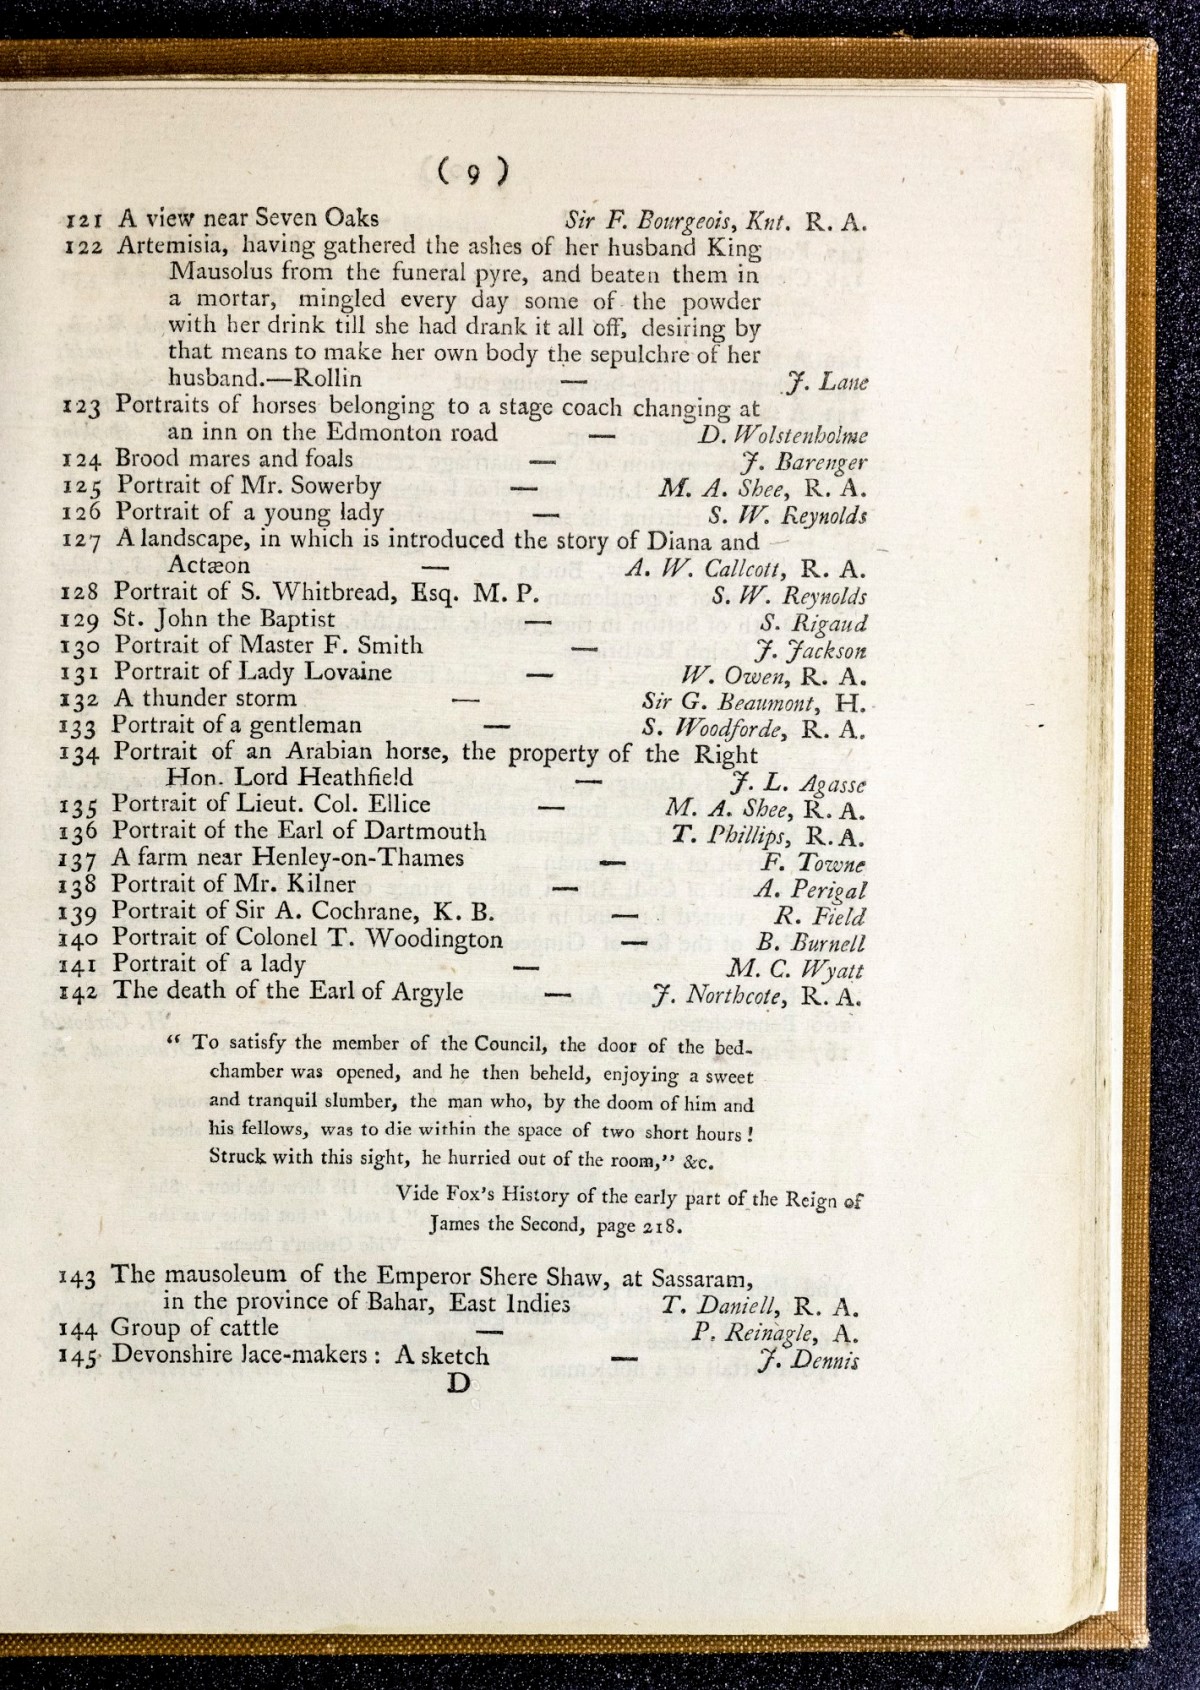 ( 9 )
121 A view near Seven Oaks Sir F. Bourgeois, Knt. R. A.
122 Artemisia, having gathered the ashes of her husband King
Mausolus from the funeral pyre, and beaten them in
a mortar, mingled every day some of the powder
with her drink till she had drank it all off, desiring by
that means to make her own body the sepulchre of her
husband.—Rollin — J. Lane
123 Portraits of horses belonging to a stage coach changing at
an inn on the Edmonton road — D. Wolstenholme
124 Brood mares and foals — J. Barenger
125 Portrait of Mr. Sowerby — M. A. Shee, R. A.
126 Portrait of a young lady — S. W. Reynolds
127 A landscape, in which is introduced the story of Diana and
Actæon — A. W. Callcott, R. A.
128 Portrait of S. Whitbread, Esq. M. P. S. W. Reynolds
129 St. John the Baptist — S. Rigaud
130 Portrait of Master F. Smith — J. Jackson
131 Portrait of Lady Lovaine — W. Owen, R. A.
132 A thunder storm — Sir G. Beaumont, H.
133 Portrait of a gentleman — S. Woodforde, R. A.
134 Portrait of an Arabian horse, the property of the Right
Hon. Lord Heathfield — J. L. Agasse
135 Portrait of Lieut. Col. Ellice — M. A. Shee, R. A.
136 Portrait of the Earl of Dartmouth T. Phillips, R. A.
137 A farm near Henley-on-Thames — F. Towne
138 Portrait of Mr. Kilner — A. Perigal
139 Portrait of Sir A. Cochrane, K. B. — R. Field
140 Portrait of Colonel T. Woodington — B. Burnell
141 Portrait of a lady — M. C. Wyatt
142 The death of the Earl of Argyle — J. Northcote, R. A.
“ To satisfy the member of the Council, the door of the bed-
chamber was opened, and he then beheld, enjoying a sweet
and tranquil slumber, the man who, by the doom of him and
his fellows, was to die within the space of two short hours !
Struck with this sight, he hurried out of the room,” &c.
Vide Fox's History of the early part of the Reign of
James the Second, page 218.
143 The mausoleum of the Emperor Shere Shaw, at Sassaram,
in the province of Bahar, East Indies T. Daniell, R. A.
144 Group of cattle — P. Reinagle, A.
145 Devonshire lace-makers : A sketch — J. Dennis
D